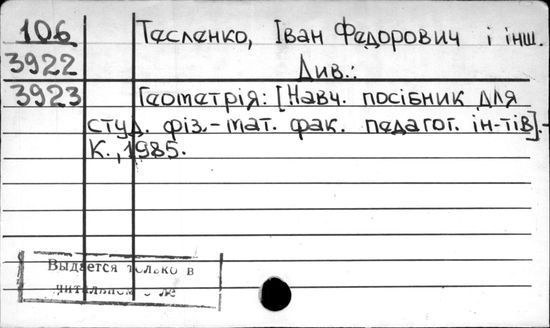 106 Тесленко, Іван Федорович і інш.
3922 Див.:
3923 Геометрія: [Навч. посібник для
студ. фіз.-мат. фак. педагог. ін-тів].-
К., 1985.
Выдается только в
читальном зале